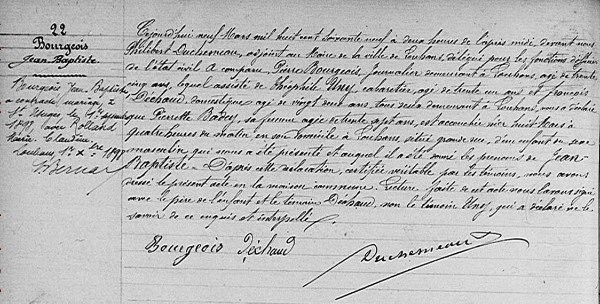 22
Bourgeois
Jean-Baptiste
Bourgeois Jean Baptiste
a contracté mariage à
St le 1er
1898 avec Rolland
Marie Claudine
Louhans, le Xbre 1898
Cejourd'hui neuf Mars mil huit cent soixante neuf à deux heures de l'après midi, devant nous
Philibert Duchemeau, adjoint au Maire de la ville de Louhans, délégué pour les fonctions d'officier
de l'état civil. A comparu, Pierre Bourgeois, journalier demeurant à Louhans, agé de trente
cinq ans, lequel assisté de Théophile Uny, cabaretier, agé de trente un ans et François
Déchaud, domestique, agé de vingt deux ans, tous deux demeurant à Louhans, nous a déclaré
que Pierrette Badey, sa femme agée de trente sept ans, est accouchée hier huit Mars à
quatre heures du matin en son domicile à Louhans, sitné grande rue, d'un enfant du sexe
masculin, qui nous a été présenté et auquel il a été donné les prénoms de Jean-
Baptiste. D'après cette déclaration, certifiée véritable par les témoins, nous avons
dressé le présent acte en la maison commune. Lecture faite de cet acte nous l'avons signé
avec le père de l'enfant et le témoin Déchaud, non le témoin Uny, qui a déclaré ne le
savoir de ce enquis et interpellé.
Bourgeois Déchaud Duchemeau